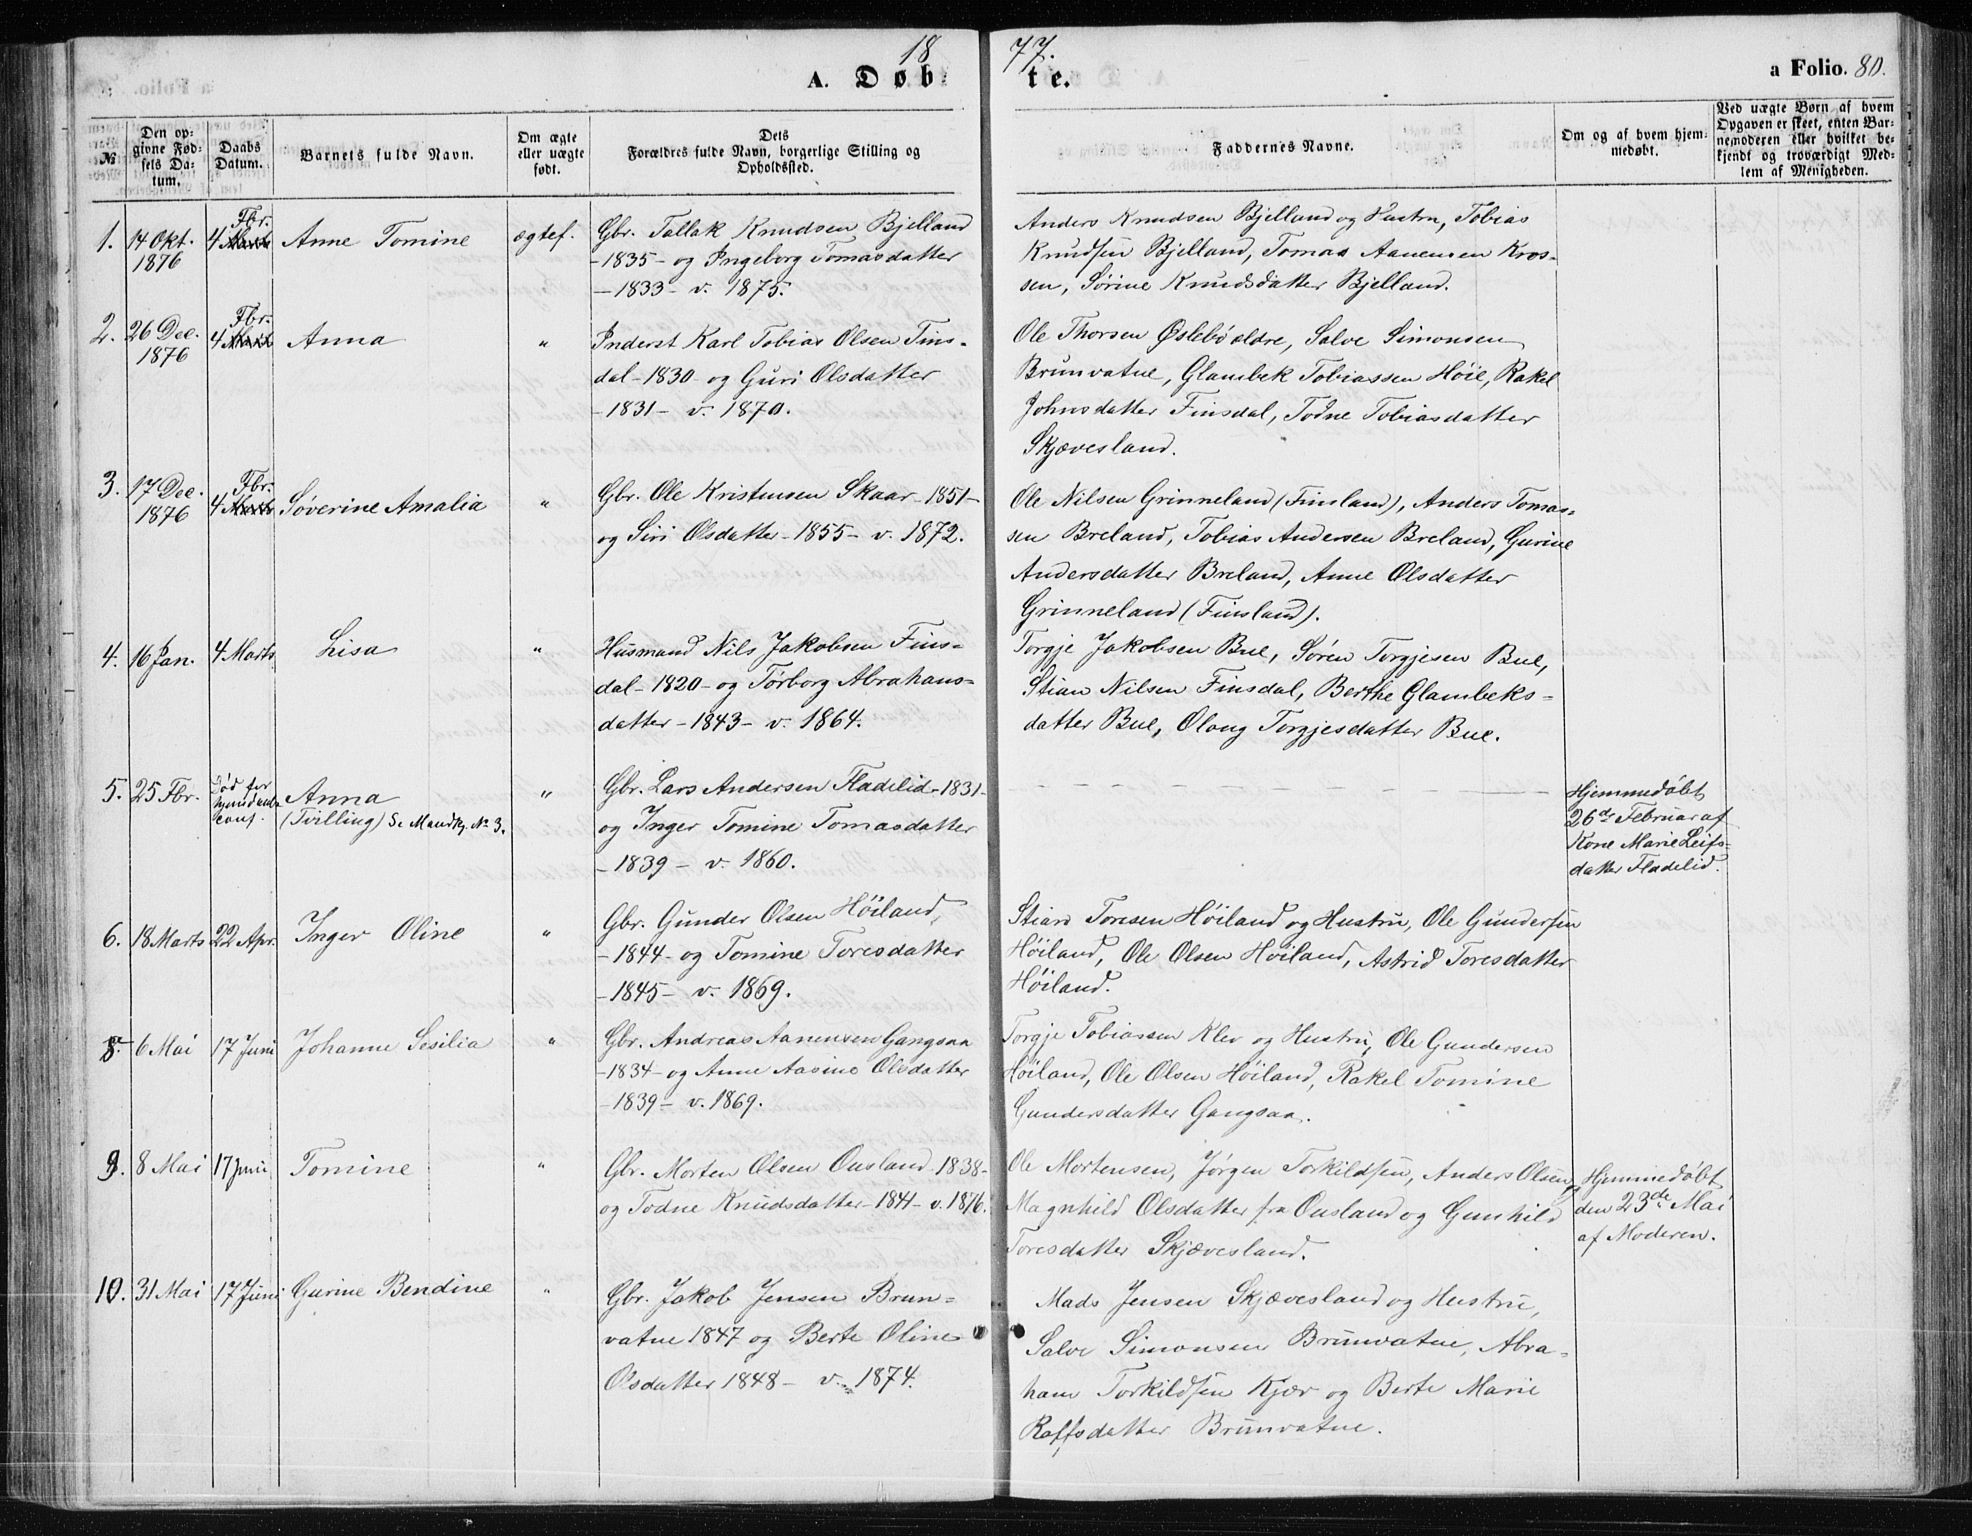 1877.
A. Døbte.
a Folio. 80.
№
Den opgivne Fødsels Datum.
Daabs Datum.
Barnets fulde Navn.
Om ægte eller uægte født.
Dets Forældres fulde Navn, borgerlige Stilling og Opholdssted.
Faddernes Navne.
Om og af hvem hjemmedøbt.
Ved uægte Børn af hvem Opgaven er skeet, enten Barnemoderen eller hvilket bekjendt og troværdigt Medlem af Menigheden.
1. 14 Okt. 1876
4 Fbr.
Anne Tomine
ægtef.
Gbr. Tallak Knudsen Bjelland
-1835- og Ingeborg Tomasdatter
-1833- v. 1875.
Anders Knudsen Bjelland og Hustru, Tobias
Knudsen Bjelland, Tomas Aanensen Kros-
sen, Sørine Knudsdatter Bjelland.
2. 26 Dec. 1876
4 Fbr.
Anna
"
Inderst Karl Tobias Olsen Fins-
dal -1830- og Guri Olsdatter
-1831- v. 1870.
Ole Thorsen Øslebø ældre, Salve Simonsen
Brunvatne, Glambek Tobiassen Høie, Rakel
Johnsdatter Finsdal, Todne Tobiasdatter
Skjævesland.
3. 17 Dec. 1876
4 Fbr.
Søverine Amalia
"
Gbr. Ole Kristensen Skaar -1851-
og Siri Olsdatter -1855- v. 1872.
Ole Nilsen Grinneland (Finsland), Anders Tomas-
sen Breland, Tobias Andersen Breland, Gurine
Andersdatter Breland, Anne Olsdatter
Grinneland (Finsland).
4. 16 Jan.
4 Marts
Lisa
"
Husmand Nils Jakobsen Fins-
dal -1820- og Torborg Abrahams-
datter -1843- v. 1864.
Torgje Jakobsen Bue, Søren Torgjesen Bue,
Stian Nilsen Finsdal, Berthe Glambeks-
datter Bue, Olaug Torgjesdatter Bue.
5. 25 Fbr.
Død før hjemdaabs conf.
Anna
(Tvilling) S. Mandkj. № 3.
"
Gbr. Lars Andersen Fladelid -1831-
og Inger Tomine Tomasdatter
-1839- v. 1860.
Hjemmedøbt
26de Februar af
Kone Marie Leifs-
datter Fladelid.
6. 18 Marts
22 Apr.
Inger Oline
"
Gbr. Gunder Olsen Høiland,
-1844- og Tomine Toresdatter
-1845- v. 1869.
Stian Toresen Høiland og Hustru, Ole Gundersen
Høiland, Ole Olsen Høiland, Astrid Toresdatter
Høiland.
8. 6 Mai
17 Juni
Johanne Sesilia
"
Gbr. Andreas Aanensen Gangsaa
-1834- og Anne Aasine Olsdatter
-1839- v. 1869.
Torgje Tobiassen Klev og Hustru, Ole Gundersen
Høiland, Ole Olsen Høiland, Rakel Tomine
Gundersdatter Gangsaa.
9. 8 Mai
17 Juni
Tomine
"
Gbr. Morten Olsen Ousland -1838-
og Todne Knudsdatter -1841- v. 1876.
Ole Mortensen, Jørgen Torkildsen, Anders Olsen,
Magnhild Olsdatter fra Ousland og Gunhild
Toresdatter Skjævesland.
Hjemmedøbt
den 23de Mai
af Moderen.
10. 31 Mai
17 Juni
Gurine Bendine
"
Gbr. Jakob Jensen Brun-
vatne 1847 og Berte Oline
Olsdatter 1848- v. 1874.
Mads Jensen Skjævesland og Hustru,
Salve Simonsen Brunvatne, Abra-
ham Torkildsen Kjær og Berte Marie
Roffsdatter Brunvatne.